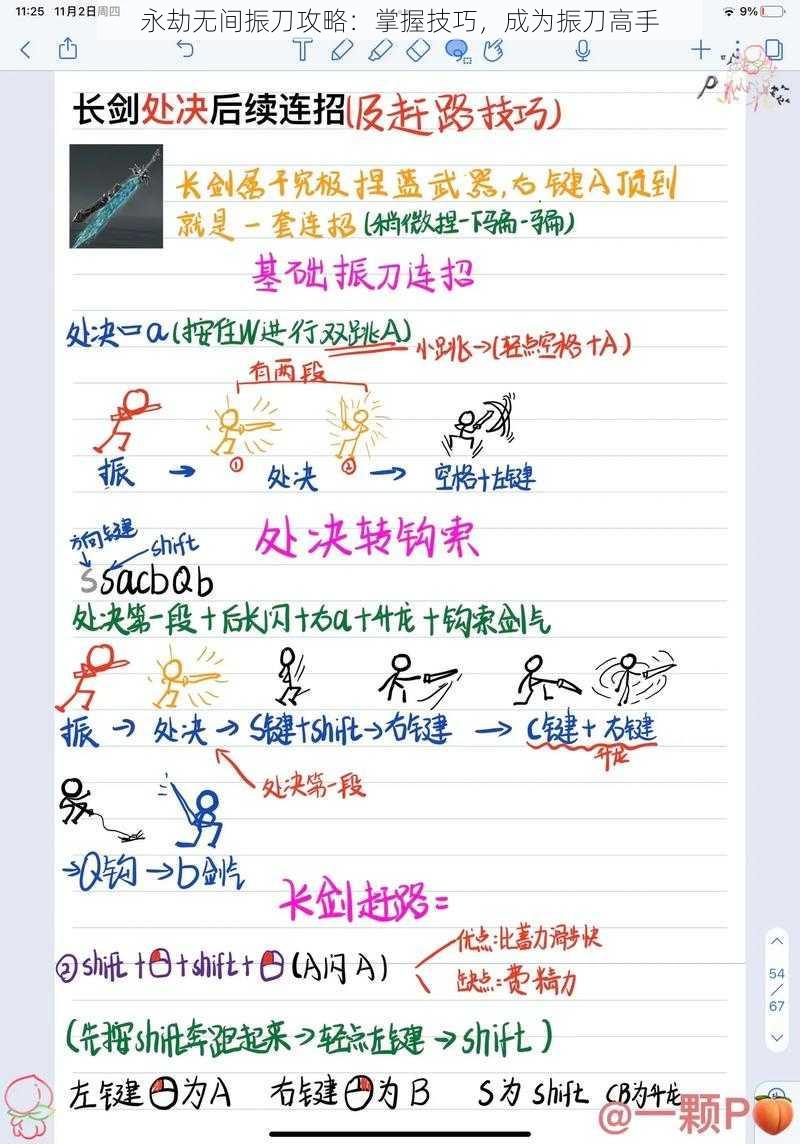 永劫无间振刀攻略：掌握技巧，成为振刀高手
11:25 11月2日周四
9%
长剑处决后续连招(及赶路技巧)
长剑属于究极捏蓝武器,右键A顶到
就是一套连招(稍微捏一下骗一骗)
基础振刀连招
处决=a(按住W进行双跳A)
小跳→(轻点空格+A)
有两段
① ②
振 → 处决 → 空格+左键
处决转钩索
方向键 shift
SsacbQb
处决第一段+后长闪+右a+升龙+钩索剑气
振 → 处决 → S键+shift→右键 → C键+右键
升龙
处决第一段
→Q钩→b剑气
长剑赶路=
优点:比蓄力滑步快
②shift++shift+(A闪A)
缺点:费精力
(先按shift奔跑起来→轻点左键→shift)
左键为A 右键为B S为shift CB为升龙
54
/
67
@一颗P